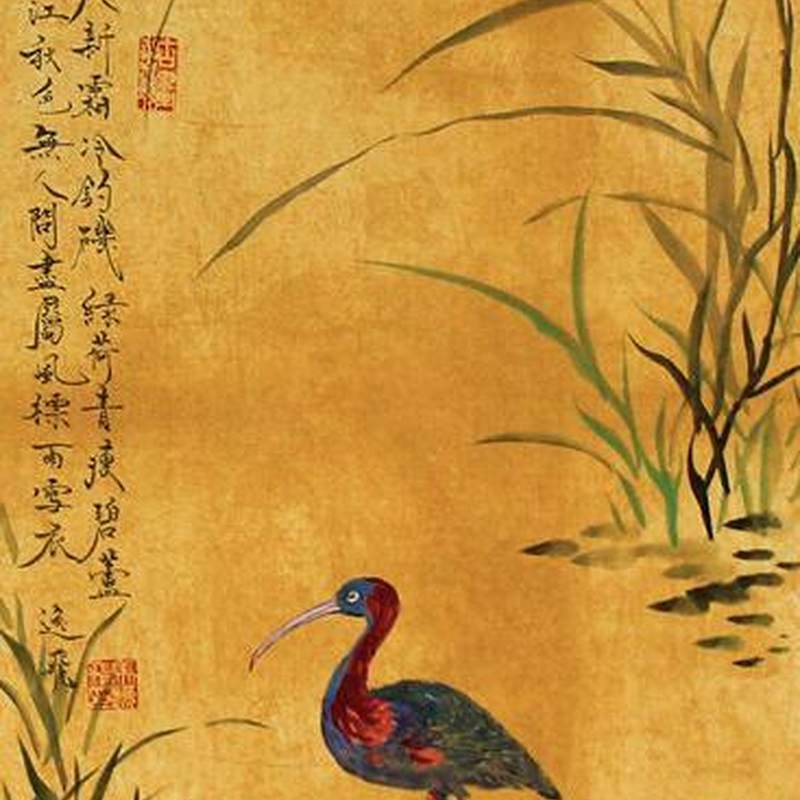 新霜冷釣磯緑荷青瘦碧蘆
江秋色無人問盡屬風標雨雪衣
逸飛